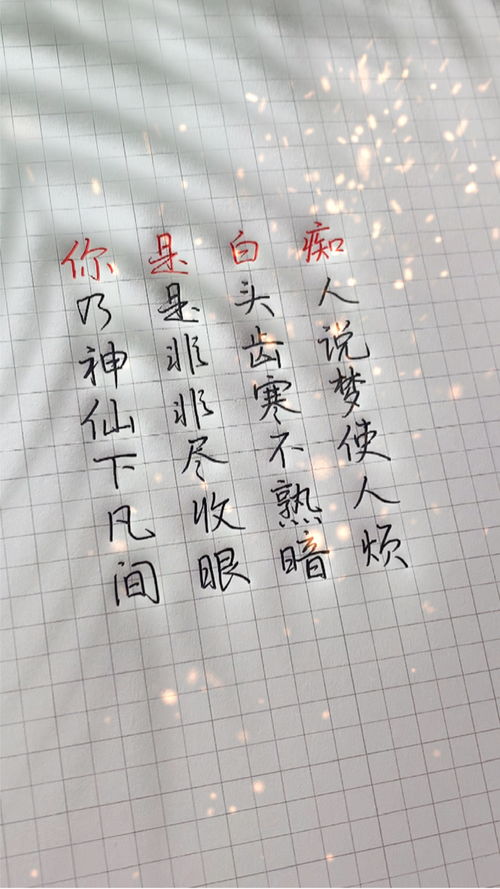 你乃神仙下凡间
是是非非尽收眼
白头齿寒不熟暗
痴人说梦使人烦